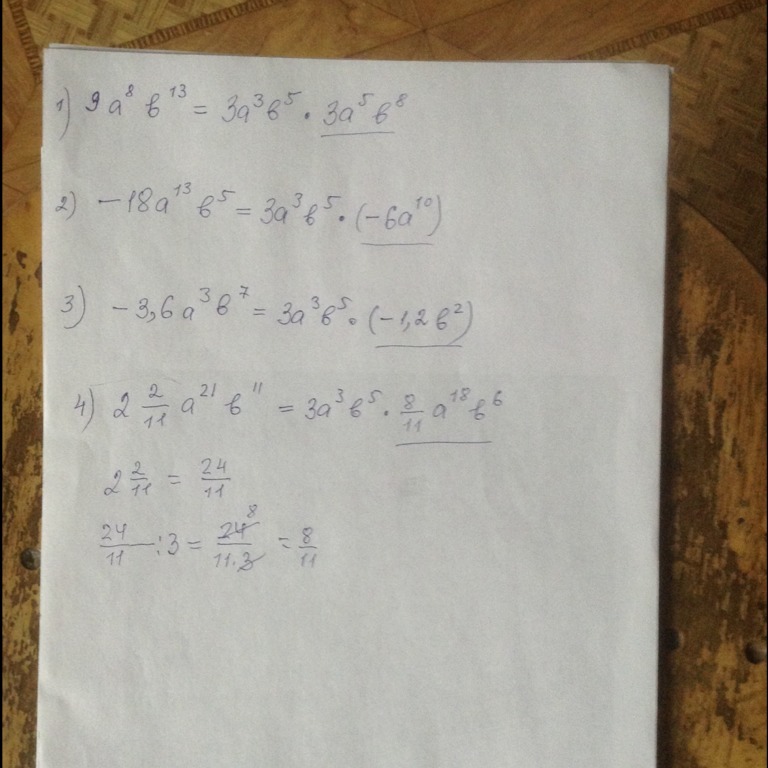 1) 9a⁸в¹³ = 3a³в⁵ · 3a⁵в⁸
2) −18a¹³в⁵ = 3a³в⁵ · (−6a¹⁰)
3) −3,6a³в⁷ = 3a³в⁵ · (−1,2в²)
4) 2 2/11 a²¹в¹¹ = 3a³в⁵ · 8/11 a¹⁸в⁶
2 2/11 = 24/11
24/11 : 3 = 24⁸/11·3 = 8/11